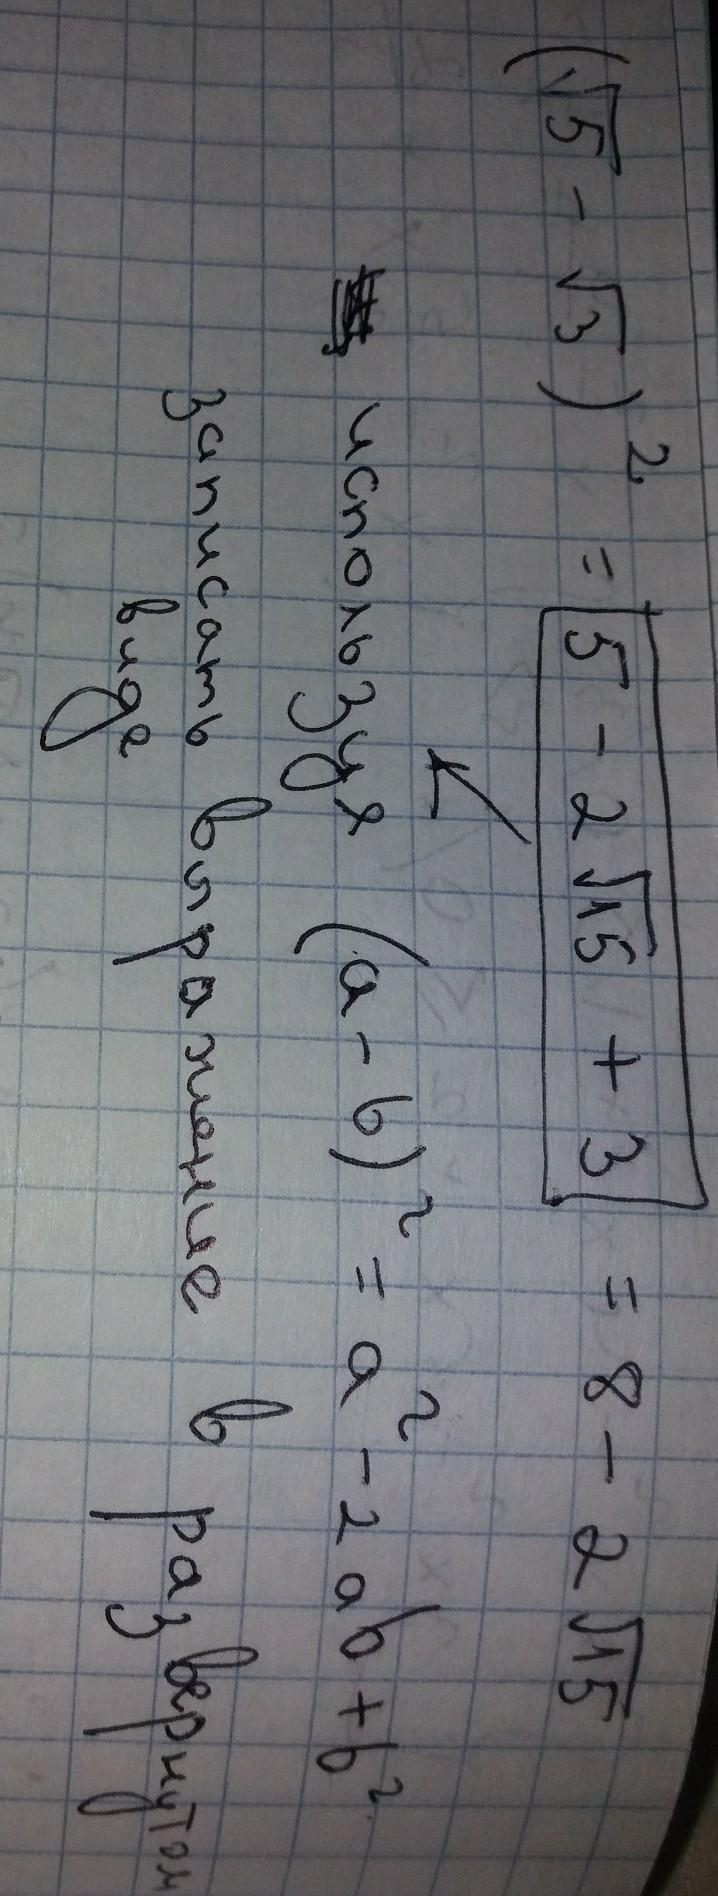 (√5 - √3)² = 5 - 2√15 + 3 = 8 - 2√15
используя (a-b)² = a² - 2ab + b²
записать выражение в развернутом
виде